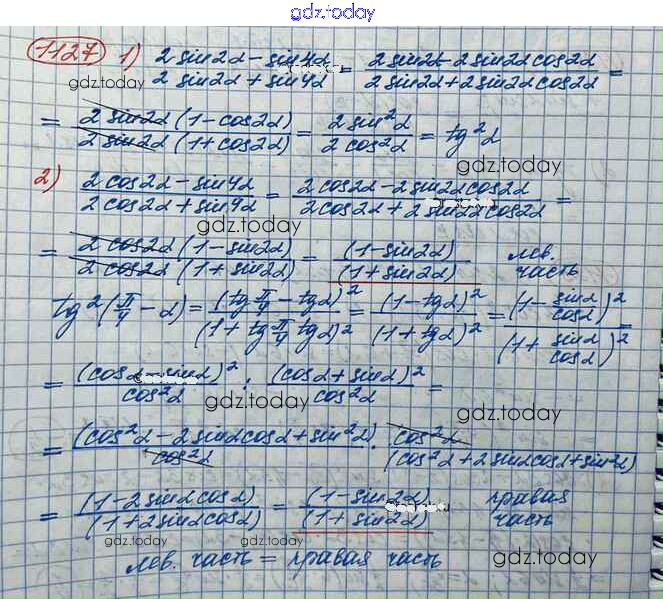 gdz.today
1127 1) (2 sin2α - sin4α)/(2 sin2α + sin4α) = (2 sin2α - 2 sin2α cos2α)/(2 sin2α + 2 sin2α cos2α) =
gdz.today
gdz.today
= (2 sin2α (1 - cos2α))/(2 sin2α (1 + cos2α)) = (2 sin²α)/(2 cos²α) = tg²α
gdz.today
2) (2 cos2α - sin4α)/(2 cos2α + sin4α) = (2 cos2α - 2 sin2α cos2α)/(2 cos2α + 2 sin2α cos2α) =
gdz.today
= (2 cos2α (1 - sin2α))/(2 cos2α (1 + sin2α)) = (1 - sin2α)/(1 + sin2α) лев. часть
gdz.today
tg²(π/4 - α) = (tg π/4 - tgα)²/(1 + tg π/4 tgα)² = (1 - tgα)²/(1 + tgα)² = (1 - sinα/cosα)²/(1 + sinα/cosα)² =
= (cosα - sinα)²/cos²α : (cosα + sinα)²/cos²α =
gdz.today
gdz.today
= (cos²α - 2 sinα cosα + sin²α)/cos²α · cos²α/(cos²α + 2 sinα cosα + sin²α)
= (1 - 2 sinα cosα)/(1 + 2 sinα cosα) = (1 - sin2α)/(1 + sin2α) правая часть
gdz.today
gdz.today
лев. часть = правая часть
gdz.today